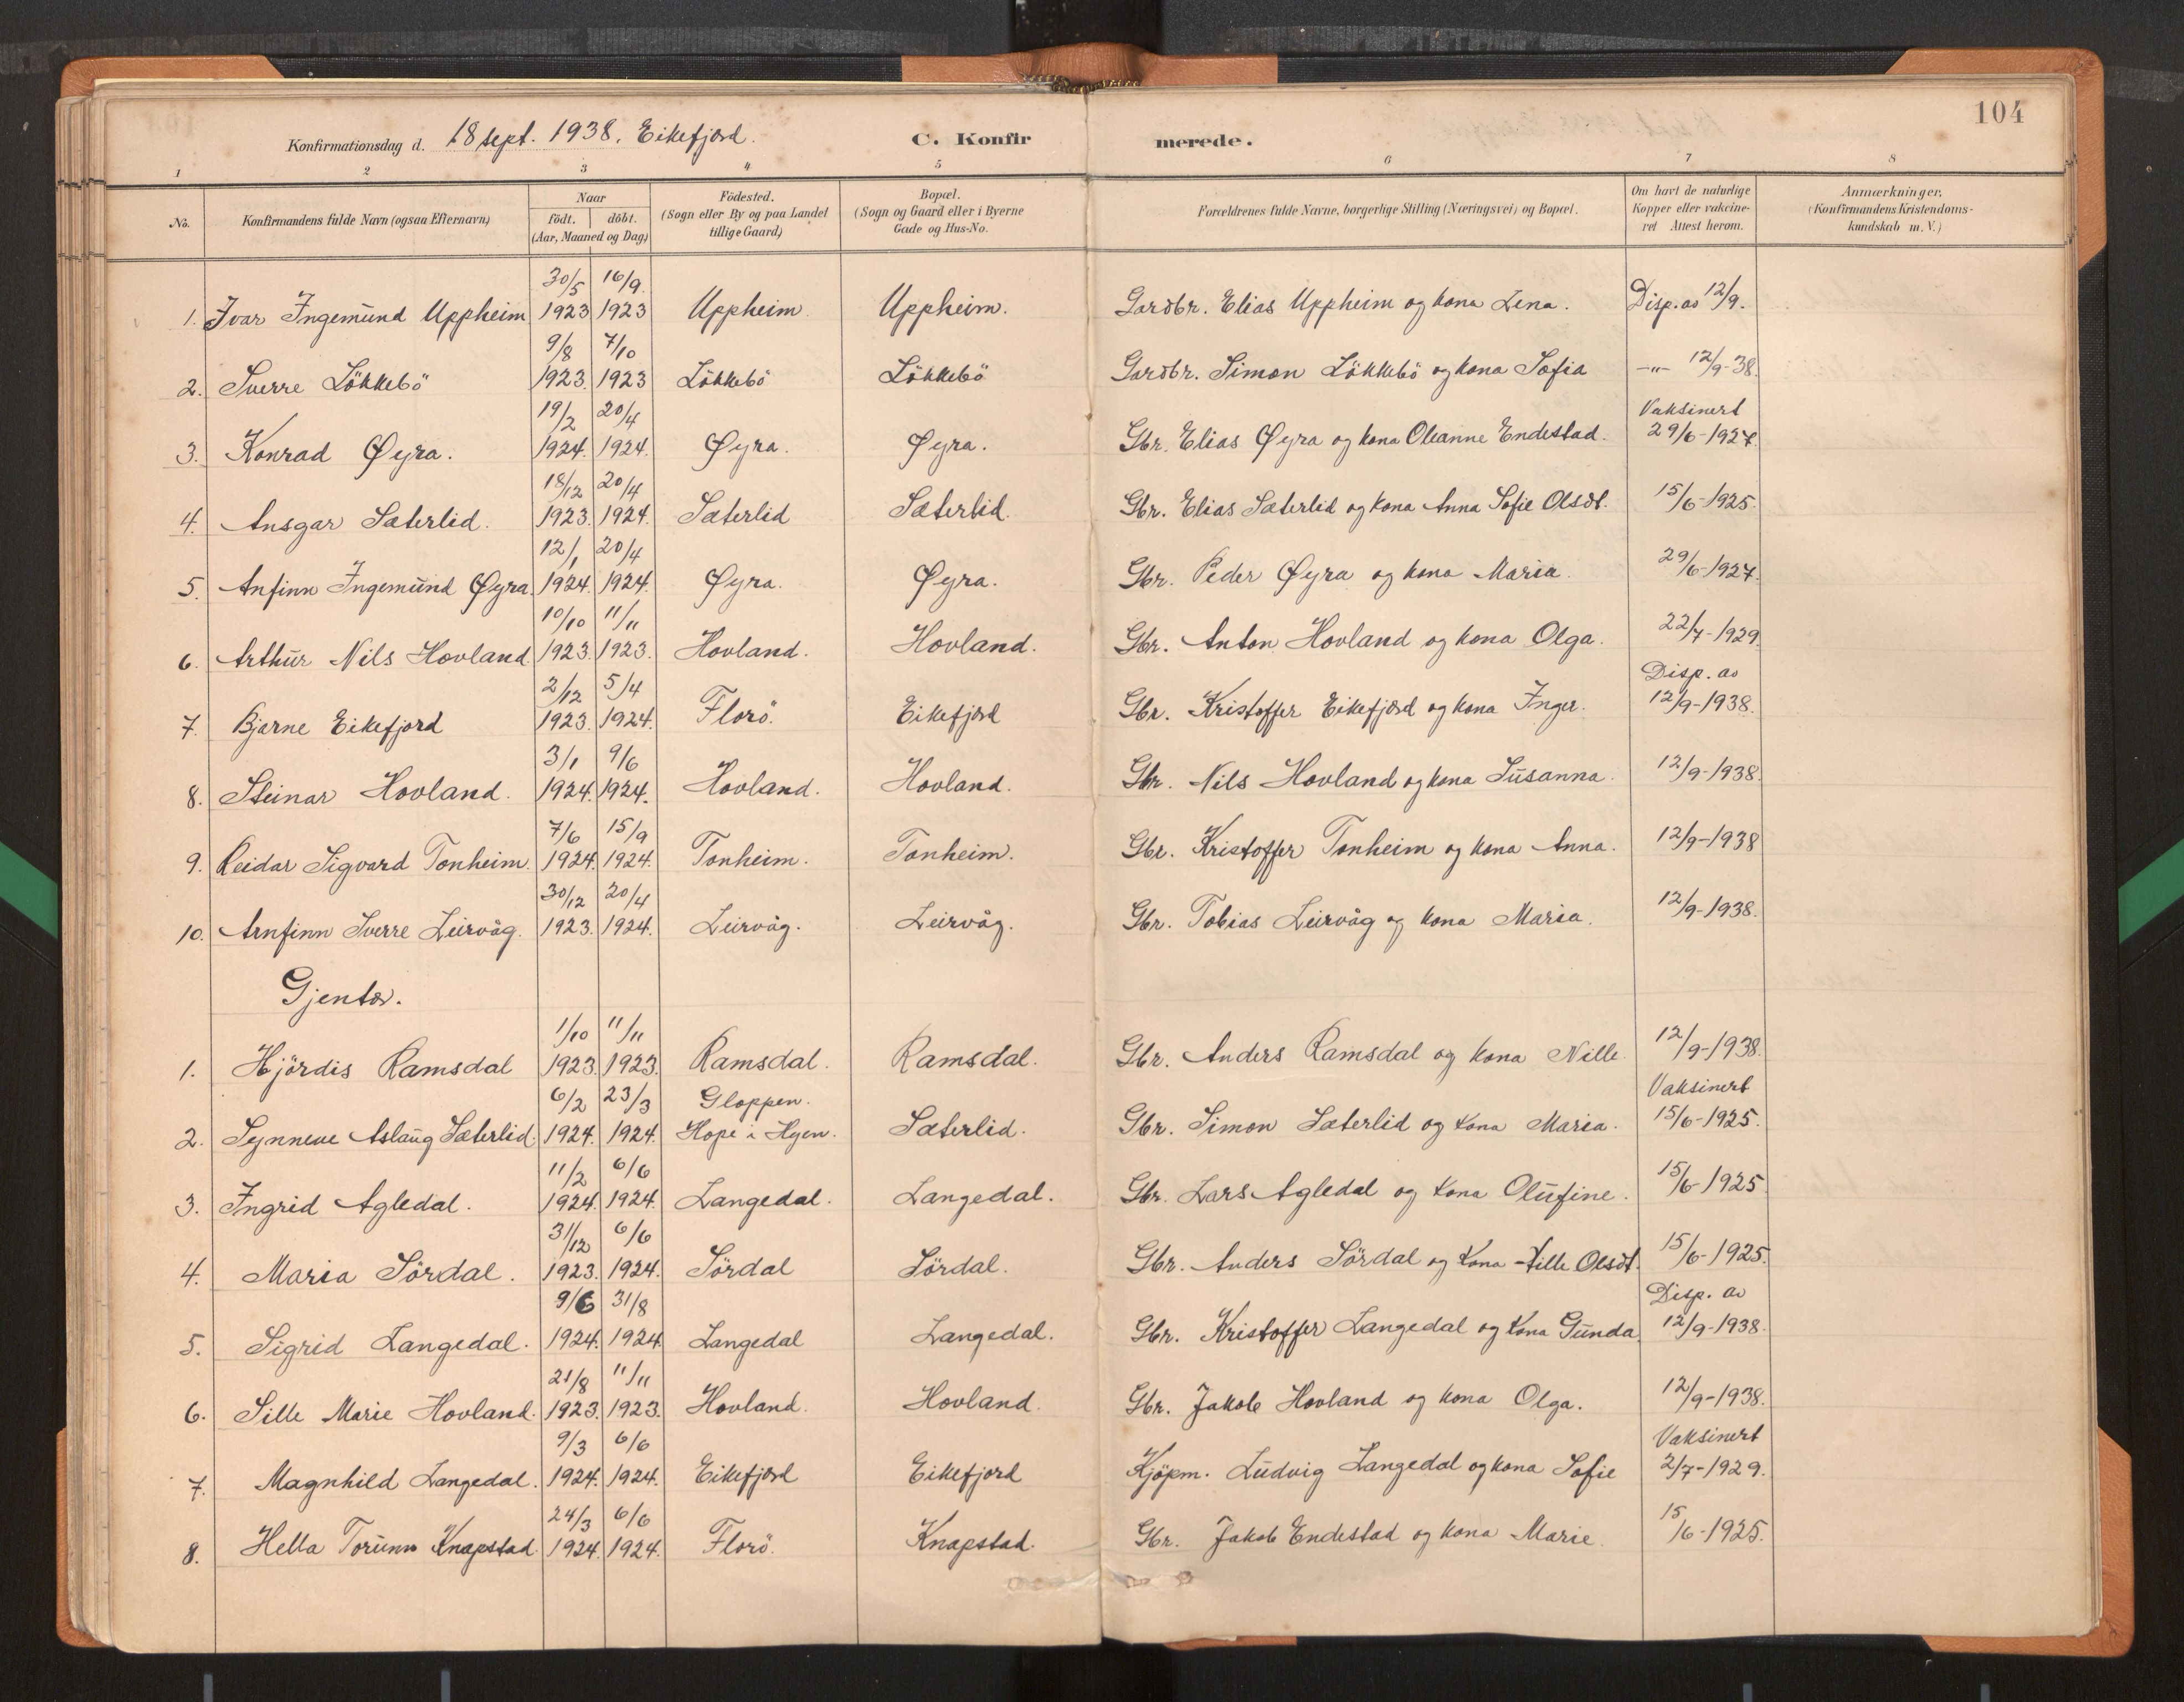 104
Konfirmationsdag d. 18 sept. 1938. Eikefjord.
C. Konfirmerede.
1 2 3 4 5 6 7 8
No. | Konfirmandens fulde Navn (ogsaa Efternavn) | Naar födt. döbt. (Aar, Maaned og Dag) | Födested. (Sogn eller By og paa Landet tillige Gaard) | Bopæl. (Sogn og Gaard eller i Byerne Gade og Hus-No. | Forældrenes fulde Navne, borgerlige Stilling (Næringsvei) og Bopæl. | Om havt de naturlige Kopper eller vakcineret Attest herom. | Anmærkninger. (Konfirmandens Kristendomskundskab m. V.)
1. Ivar Ingemund Uppheim | 30/5 1923 | 16/9. 1923 | Uppheim. | Uppheim. | Gardbr. Elias Uppheim og kona Lena. | Disp. av 12/9.
2. Sverre Lökkebö | 9/8 1923. | 7/10 1923 | Lökkebö | Lökkebö | Gardbr. Simon Lökkebö og kona Sofia | -"- 12/9-38.
3. Konrad Øyra. | 19/2 1924. | 20/4 1924. | Øyra. | Øyra. | Gbr. Elias Øyra og kona Oleanne Endestad. | Vaksinert 29/6-1927.
4. Ansgar Sæterlid. | 18/12 1923. | 20/4 1924. | Sæterlid | Sæterlid. | Gbr. Elias Sæterlid og kona Anna Sofie Olsdt. | 15/6-1925.
5. Anfinn Ingemund Øyra | 12/1 1924. | 20/4 1924. | Øyra. | Øyra. | Gbr. Peder Øyra og kona Maria. | 29/6-1927.
6. Arthur Nils Hovland | 10/10 1923. | 11/11 1923. | Hovland. | Hovland. | Gbr. Anton Hovland og kona Olga. | 22/7-1929.
7. Bjarne Eikefjord | 2/12 1923. | 5/4 1924. | Florö. | Eikefjord | Gbr. Kristoffer Eikefjord og kona Inger. | Disp. av 12/9-1938.
8. Steinar Hovland. | 3/1 1924. | 9/6 1924. | Hovland. | Hovland. | Gbr. Nils Hovland og kona Susanna. | 12/9-1938.
9. Reidar Sigvard Tonheim. | 7/6 1924. | 15/9 1924. | Tonheim. | Tonheim. | Gbr. Kristoffer Tonheim og kona Anna. | 12/9-1938
10. Arnfinn Sverre Leirvåg. | 30/12 1923. | 20/4 1924. | Leirvåg. | Leirvåg. | Gbr. Tobias Leirvåg og kona Maria. | 12/9-1938.
Gjentor.
1. Hjördis Ramsdal | 1/10 1923. | 11/11 1923. | Ramsdal. | Ramsdal. | Gbr. Anders Ramsdal og kona Nille. | 12/9-1938.
2. Synneve Aslaug Sæterlid. | 6/2 1924. | 23/3 1924. | Gloppen. Hope i Hyen. | Sæterlid. | Gbr. Simon Sæterlid og kona Maria. | Vaksinert 15/6-1925.
3. Ingrid Agledal. | 11/2 1924. | 6/6 1924. | Langedal. | Langedal. | Gbr. Lars Agledal og kona Olufine. | 15/6-1925
4. Maria Sördal. | 31/12 1923. | 6/6 1924. | Sördal | Sördal. | Gbr. Anders Sördal og kona Olsdt. | 15/6-1925.
5. Sigrid Langedal. | 9/6 1924. | 31/8 1924. | Langedal | Langedal. | Gbr. Kristoffer Langedal og kona Gunda. | Disp. av 12/9-1938.
6. Sille Marie Hovland. | 21/8 1923. | 11/11 1923. | Hovland. | Hovland. | Gbr. Jakob Hovland og kona Olga. | 12/9-1938.
7. Magnhild Langedal. | 9/3 1924. | 6/6 1924. | Eikefjord | Eikefjord | Kjöpm. Ludvig Langedal og kona Sofie | Vaksinert 2/7-1929.
8. Hella Torunn Knapstad. | 24/3 1924. | 6/6 1924. | Florö. | Knapstad. | Gbr. Jakob Endestad og kona Marie. | 15/6-1925.